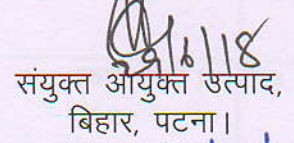 संयुक्त आयुक्त उत्पाद,
बिहार, पटना।